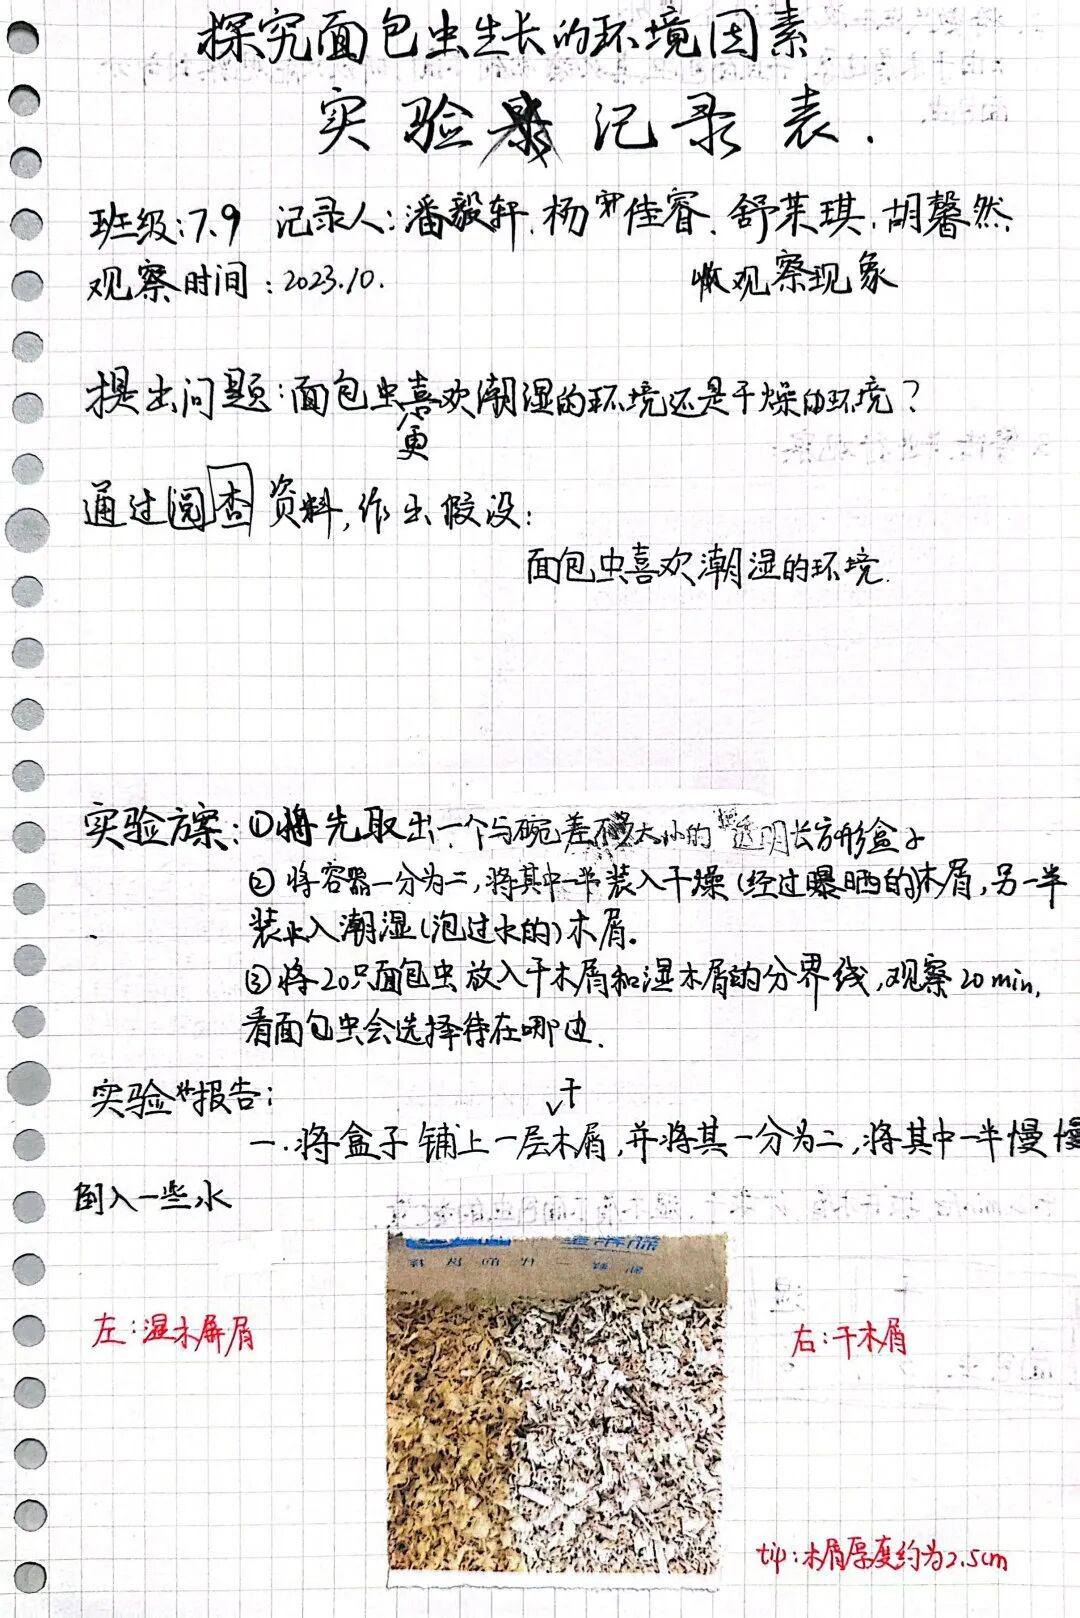 探究面包虫生长的环境因素
实验记录表.
班级:7.9 记录人:潘毅轩.杨佳睿.舒茉琪.胡馨然.
观察时间:2023.10. 观察现象
提出问题:面包虫喜欢潮湿的环境还是干燥的环境?
更
通过阅查资料,作出假设:
面包虫喜欢潮湿的环境.
实验方案:①将先取出一个与碗差不多大小的透明长方形盒子
②将容器一分为二,将其中一半装入干燥(经过曝晒的)木屑,另一半
装入潮湿(泡过水的)木屑。
③将20只面包虫放入干木屑和湿木屑的分界线,观察20min,
看面包虫会选择待在哪边.
实验报告:
干
一.将盒子铺上一层木屑,并将其一分为二,将其中一半慢慢
倒入一些水
左:湿木屑
右:干木屑
tip:木屑厚度约为2.5cm